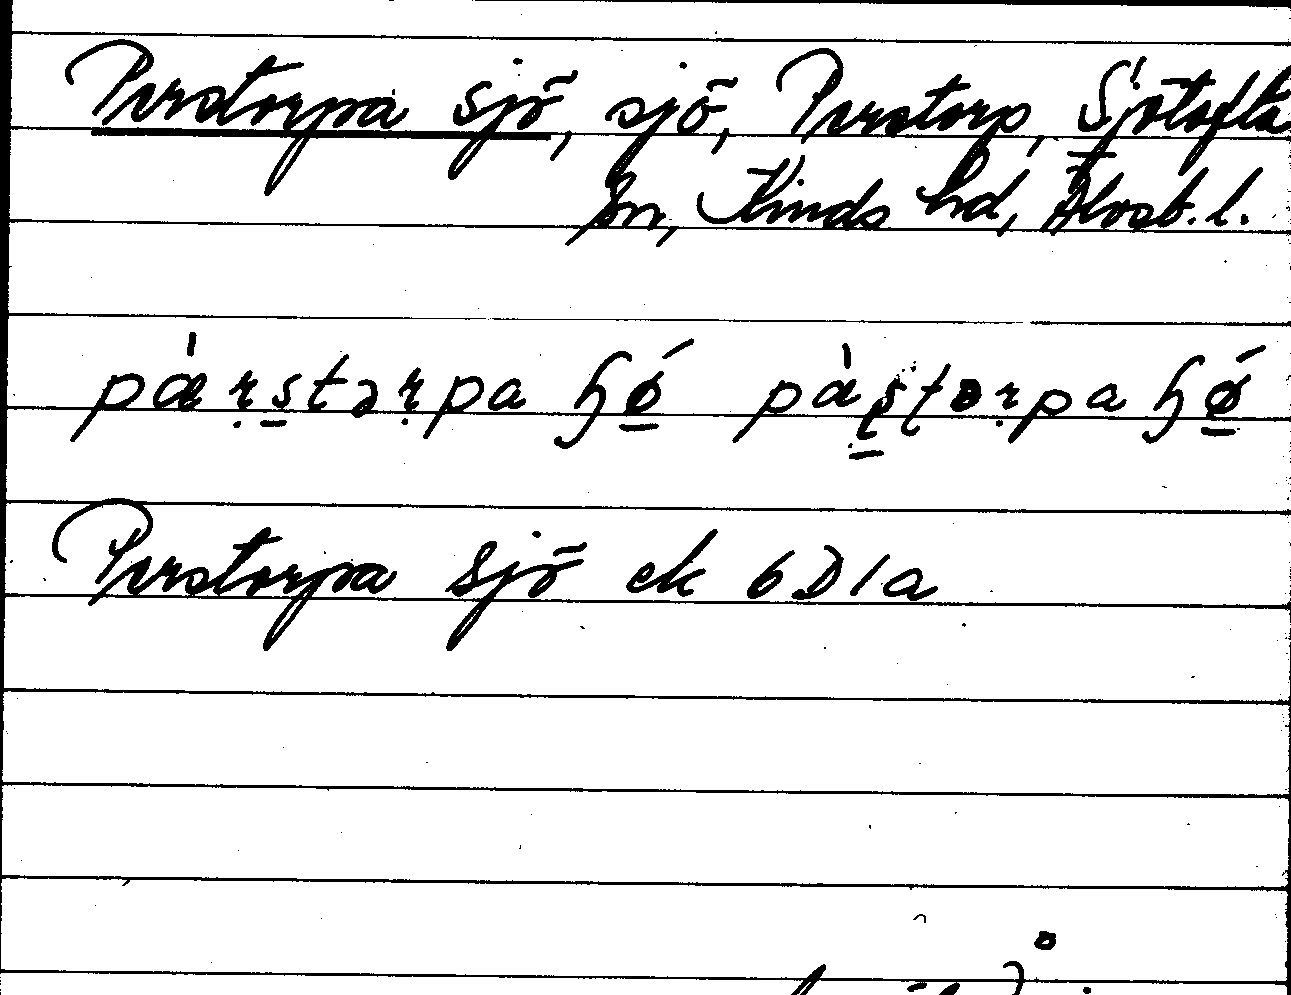 Perstorpa sjö, sjö, Perstorp, Sjötofta
sn, Kinds hd, Älvsb. l.
pǽṛs̱təṛpa ɧǿ̱ pàʂ̱ʈəṛpa ɧǿ̱
Perstorpa sjö ek 6D1a